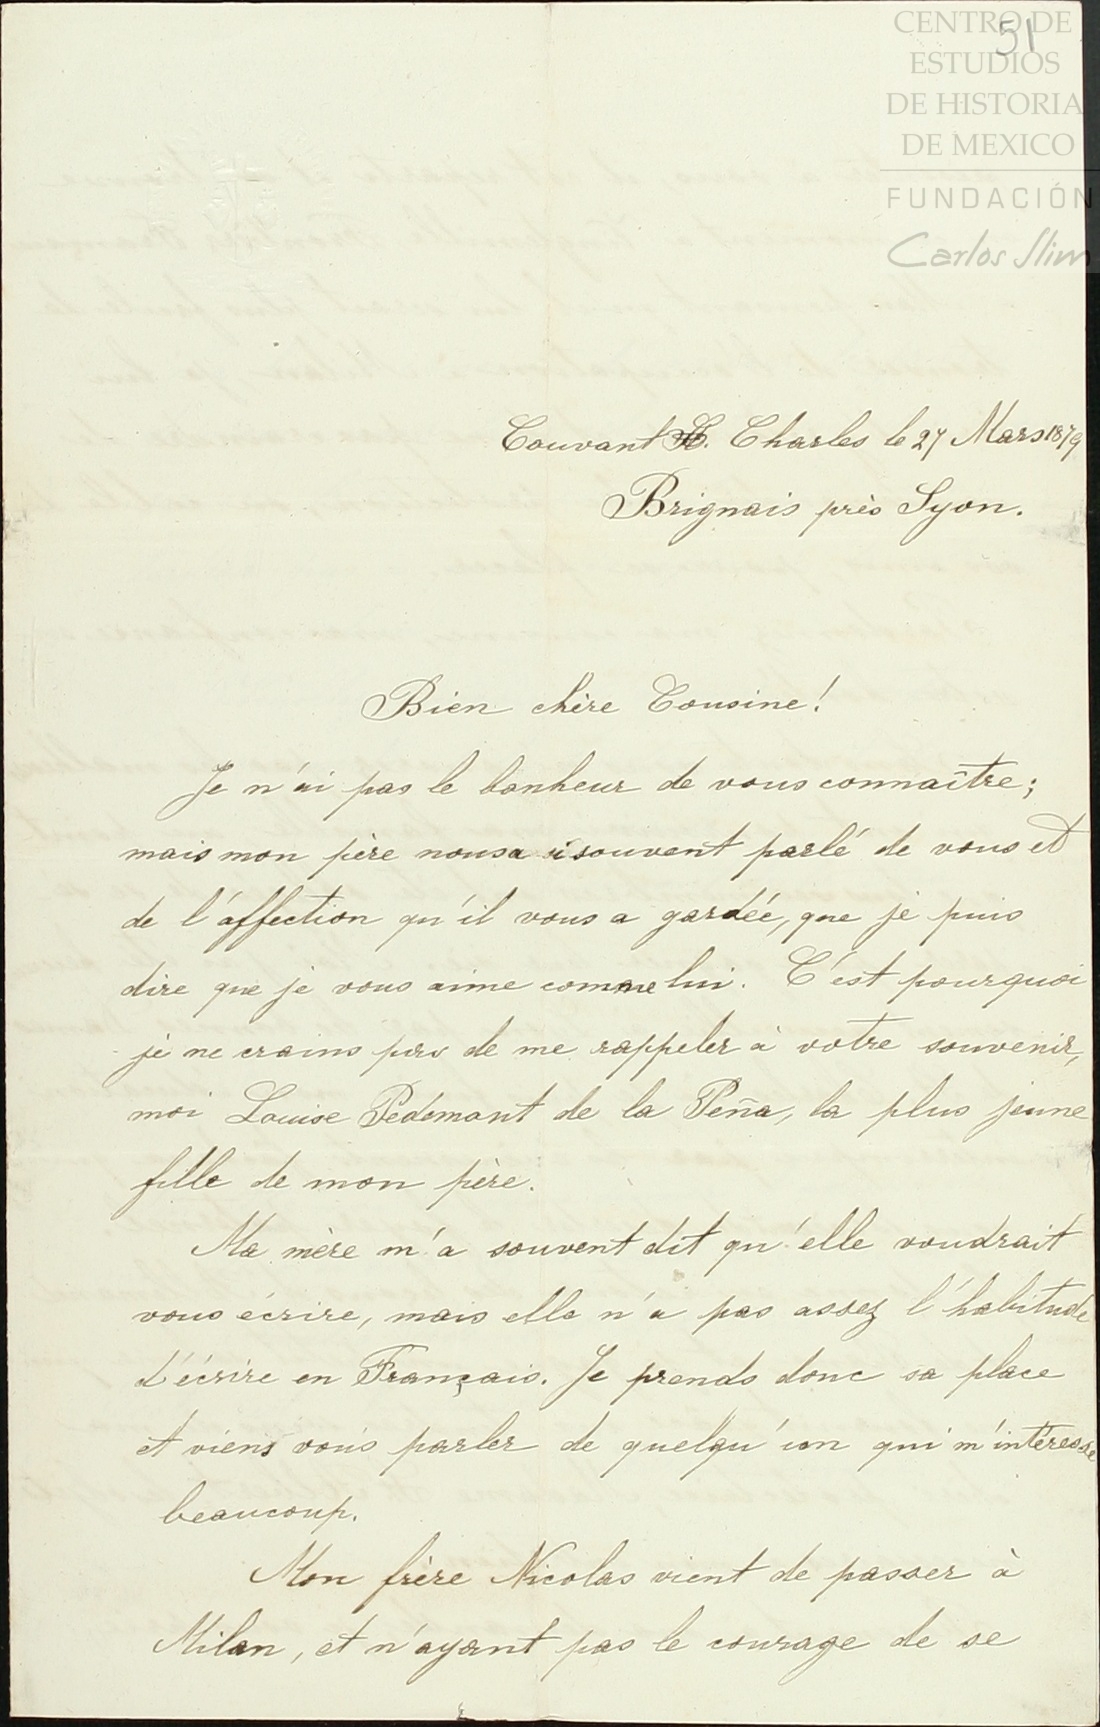 51
CENTRO DE
ESTUDIOS
DE HISTORIA
DE MEXICO
FUNDACIÓN
Carlos Slim
Couvant St. Charles le 27 Mars 1879
Brignais près Lyon.
Bien chère Cousine!
Je n'ai pas le bonheur de vous connaître;
mais mon père nous a si souvent parlé de vous et
de l'affection qu'il vous a gardée, que je puis
dire que je vous aime comme lui. C'est pourquoi
je ne crains pas de me rappeler à votre souvenir,
moi Louise Pedemont de la Peña, la plus jeune
fille de mon père.
Ma mère m'a souvent dit qu'elle voudrait
vous écrire, mais elle n'a pas assez l'habitude
d'écrire en Français. Je prends donc sa place
et viens vous parler de quelqu'un qui m'intéresse
beaucoup.
Mon frère Nicolas vient de passer à
Milan, et n'ayant pas le courage de se